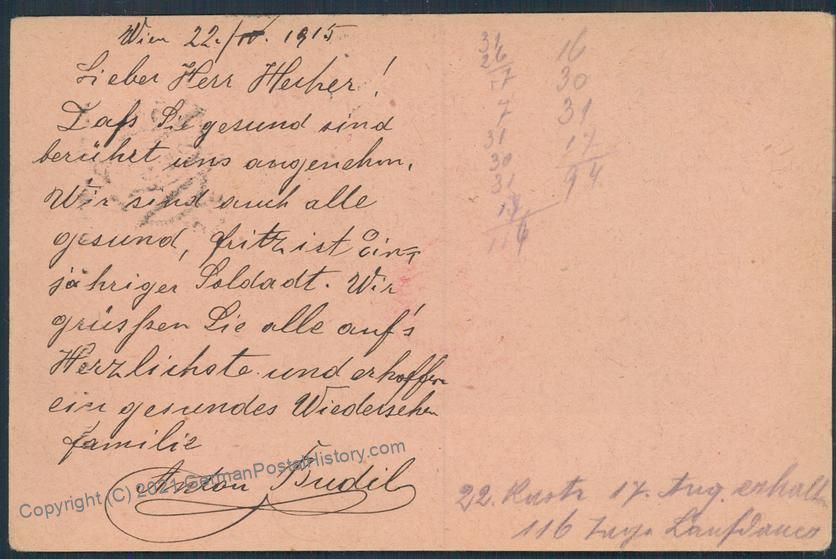 Wien 22./IV. 1915
Lieber Herr Hecher!
Dafs Sie gesund sind
berührt uns angenehm,
Wir sind auch alle
gesund, fritz ist Ein-
jähriger Soldadt. Wir
grüssen Sie alle auf's
Herzlichste und erhoffen
ein gesundes Wiedersehen
familie
Anton Budil
31
26
17
7
31
30
31
17
116
16
30
31
17
94
22. 17. Aug. erhalt
116 Tage Laufdauer
Copyright (C) 2021 GermanPostalHistory.com